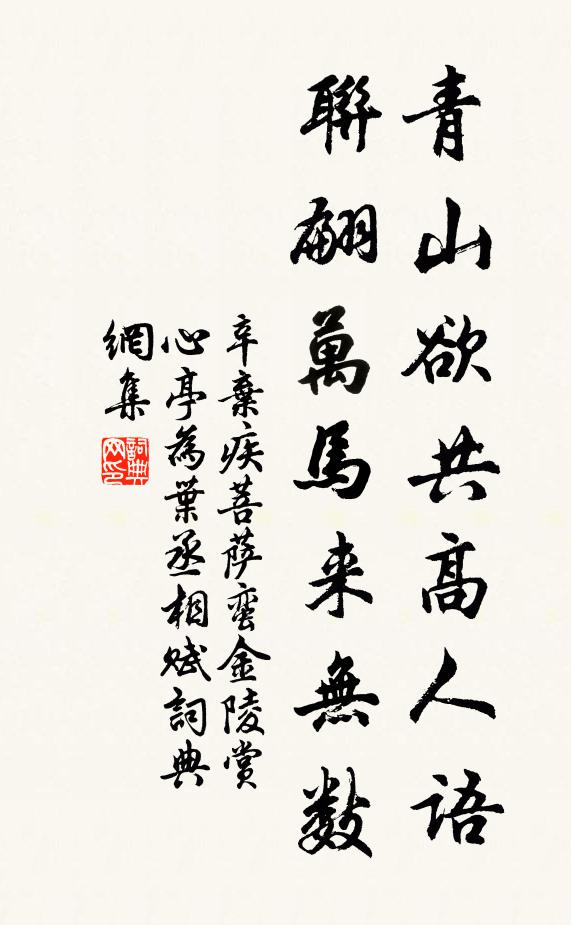 青山欲共高人语
聯翩萬馬来無数
辛棄疾菩萨蛮金陵赏
心亭為葉丞相赋詞典
網集
詞典
网印